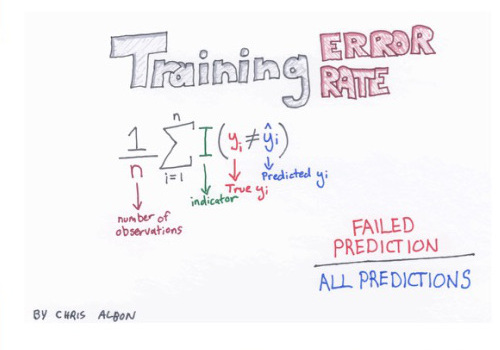 Training ERROR RATE
1/n ∑ i=1 n I(yᵢ ≠ ŷᵢ)
number of
observations
indicator
True yᵢ
Predicted yᵢ
FAILED
PREDICTION
ALL PREDICTIONS
BY CHRIS ALBON